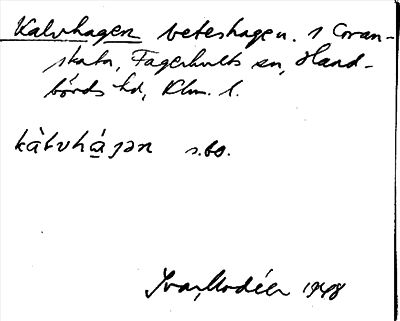 Kalvhagen beteshagen. 1 Gran-
skatn, Fagerhults sn, Hand-
börds hd, Klm. l.
kàlvhá̱gən s.bo.
Ivar Modéer 1948